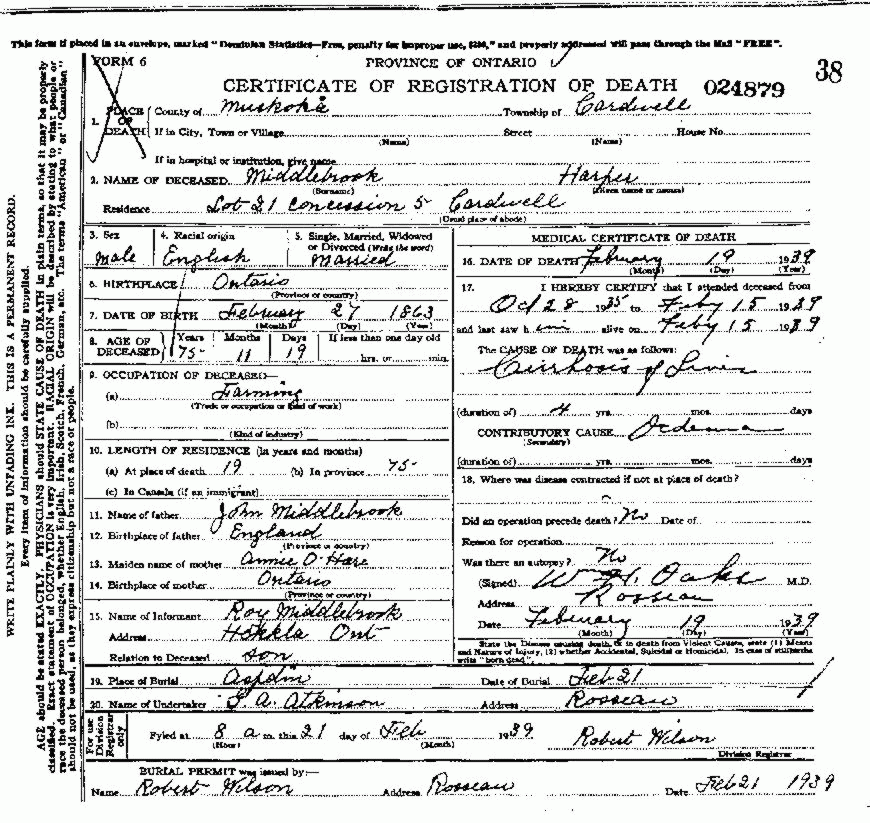 This form if placed in an envelope, marked "Dominion Statistics—Free, penalty for improper use, $300," and properly addressed will pass through the Mail "FREE".
FORM 6
PROVINCE OF ONTARIO
38
CERTIFICATE OF REGISTRATION OF DEATH 024879
1. PLACE OF DEATH County of Muskoka Township of Cardwell
If in City, Town or Village (Name) Street (Name) House No.
If in hospital or institution, give name
2. NAME OF DECEASED Middlebrook Harper
(Surname) (Given name or names)
Residence Lot 21 Concession 5 Cardwell
(Usual place of abode)
3. Sex male
4. Racial origin English
5. Single, Married, Widowed or Divorced (Write the word) Married
6. BIRTHPLACE Ontario
(Province or country)
7. DATE OF BIRTH February 27 1863
(Month) (Day) (Year)
8. AGE OF DECEASED Years 75 Months 11 Days 19 If less than one day old hrs. or min.
9. OCCUPATION OF DECEASED—
(a) Farming
(Trade or occupation or kind of work)
(b)
(Kind of industry)
10. LENGTH OF RESIDENCE (In years and months)
(a) At place of death 19 (b) In province 75
(c) In Canada (if an immigrant)
11. Name of father John Middlebrook
12. Birthplace of father England
(Province or country)
13. Maiden name of mother Annie O'Hare
14. Birthplace of mother Ontario
(Province or country)
15. Name of Informant Roy Middlebrook
Address Hekkla Ont
Relation to Deceased son
MEDICAL CERTIFICATE OF DEATH
16. DATE OF DEATH February 19 1939
(Month) (Day) (Year)
17. I HEREBY CERTIFY that I attended deceased from
Oct 28 1935 to Feby 15 1939
and last saw him alive on Feby 15 1939
The CAUSE OF DEATH was as follows:
Cirrhosis of Liver
(duration of) 4 yrs. mos. days
CONTRIBUTORY CAUSE Oedema
(Secondary)
(duration of) yrs. mos. days
18. Where was disease contracted if not at place of death?
Did an operation precede death? No Date of
Reason for operation
Was there an autopsy? No
(Signed) W H. Oaks M.D.
Address Rosseau
Date February 19 1939
(Month) (Day) (Year)
State the Disease causing death, or in death from Violent Causes, state (1) Means
and Nature of Injury, (2) whether Accidental, Suicidal or Homicidal. In case of stillbirths
write "born dead".
19. Place of Burial Aspdin Date of Burial Feb 21
20. Name of Undertaker A. Atkinson Address Rosseau
For use Division Registrar only
Fyled at 8 a m. this 21 day of Feb 1939 Robert Wilson
(Hour) (Month) Division Registrar
BURIAL PERMIT was issued by:—
Name Robert Wilson Address Rosseau Date Feb 21 1939
WRITE PLAINLY WITH UNFADING INK. THIS IS A PERMANENT RECORD.
Every item of information should be carefully supplied.
AGE should be stated EXACTLY. PHYSICIANS should STATE CAUSE OF DEATH in plain terms, so that it may be properly
classified. Exact statement of OCCUPATION is very important. RACIAL ORIGIN will be described by stating to what people or
race the deceased person belonged, whether English, Irish, Scotch, French, German, etc. The terms "American" or "Canadian"
should not be used, as they express citizenship but not a race or people.